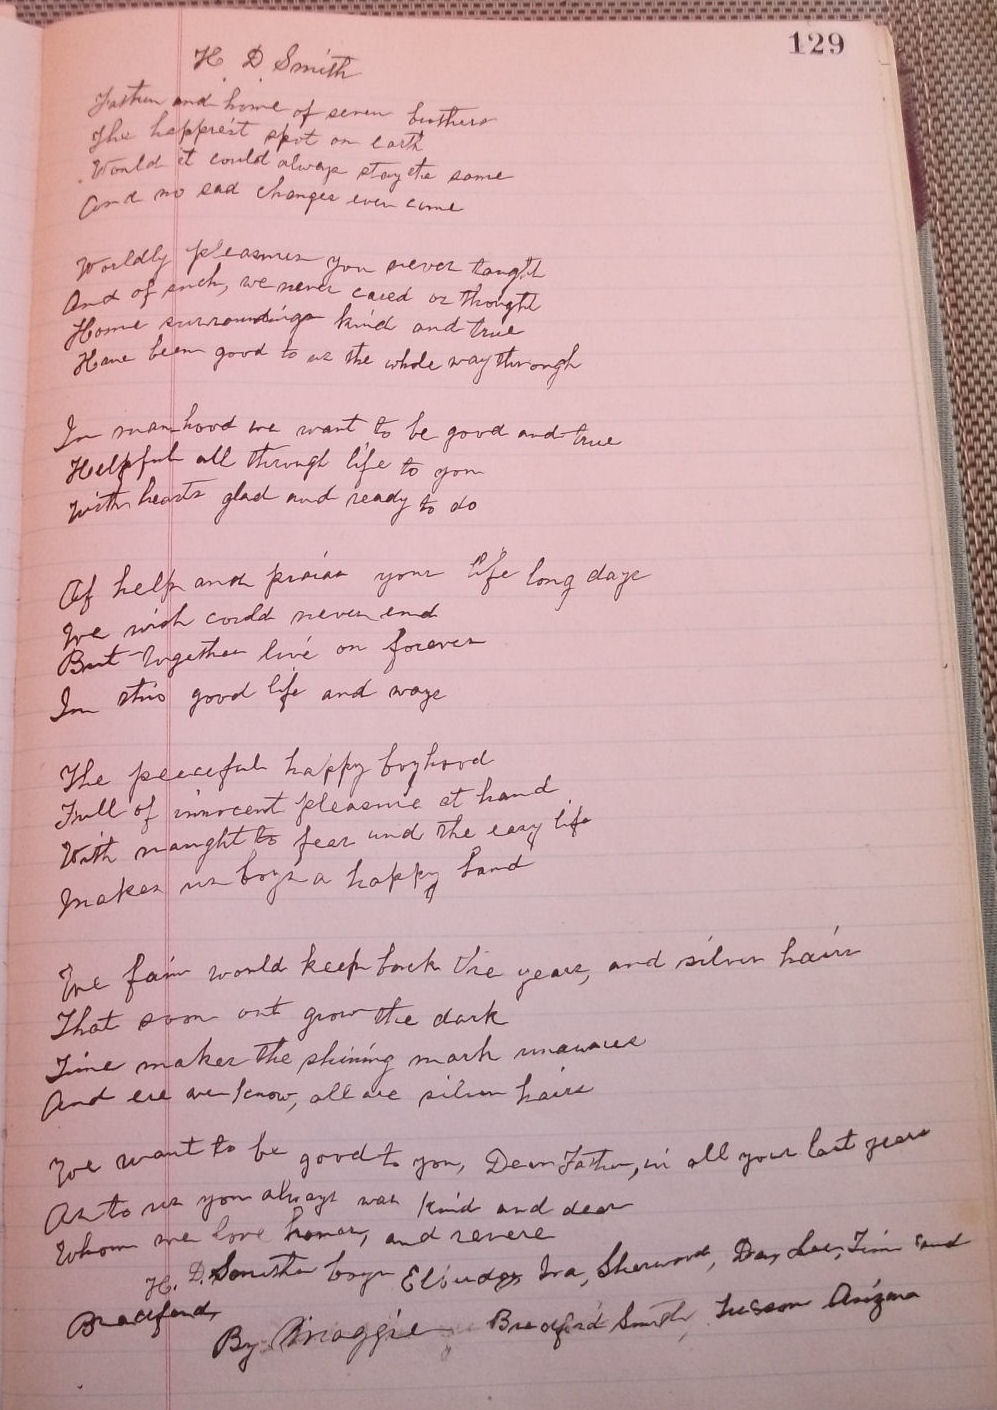 129
H. D. Smith
Father and home of seven brothers
The happiest spot on earth
Would it could always stay the same
And no sad changes ever came
Worldly pleasures you never taught
And of such, we never cared or thought
Home surroundings kind and true
Have been good to us the whole way through
In manhood we want to be good and true
Helpful all through life to you
With hearts glad and ready to do
Of help and praise your life long days
We wish could never end
But together live on forever
In this good life and ways
The peaceful happy boyhood
Full of innocent pleasure at hand
With naught to fear and the easy life
Makes us boys a happy band
We fain would keep back the years, and silver hairs
That soon out grow the dark
Time makes the shining mark unawares
And ere we know, all are silver hairs
We want to be good to you, Dear Father, in all your last years
As to us you always was kind and dear
Whom we love honor, and revere
H. D. Smiths boys Elbridge Ira, Sherwood, Day, Lee, Tim and
Bradford,
By Maggie Bradford Smith, Tucson Arizona